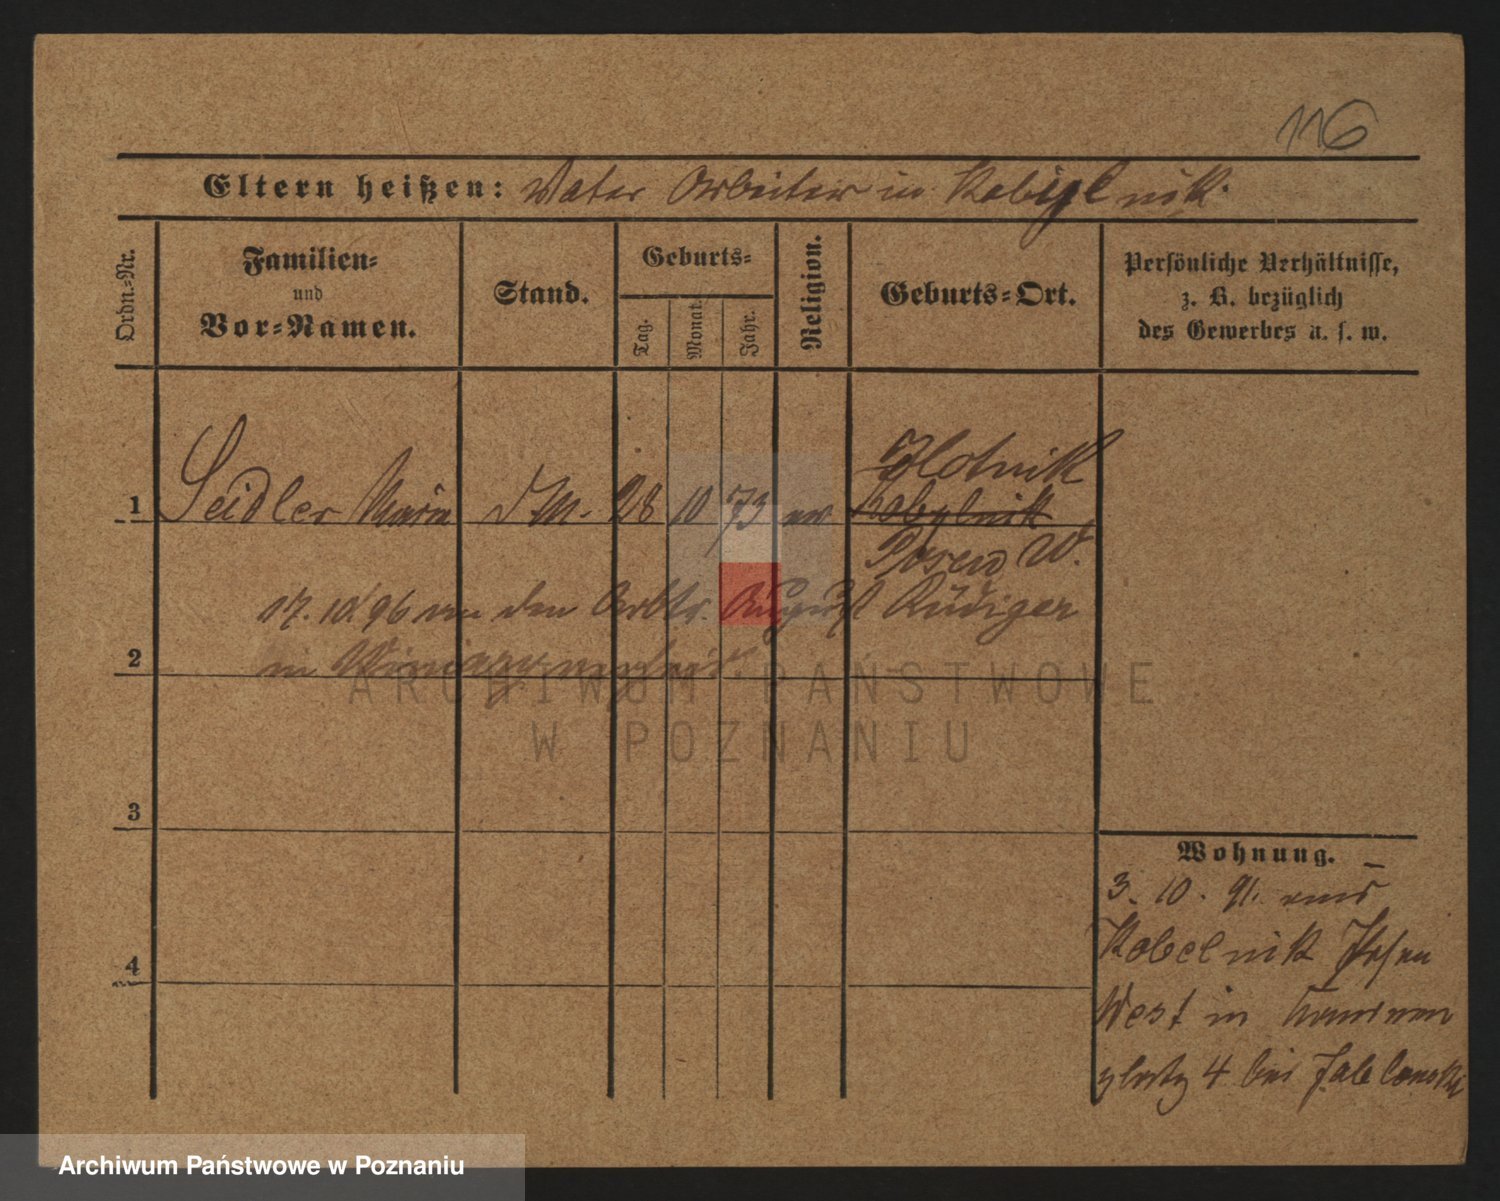 116
Eltern heißen: Vater Arbeiter in Kobiglnik.
Ordn.-Nr.
Familien-
und
Vor-Namen.
Stand.
Geburts-
Tag.
Monat.
Jahr.
Religion.
Geburts-Ort.
Persönliche Verhältnisse,
z. B. bezüglich
des Gewerbes u. s. w.
Zlotnik
1 Seidler Maria DM. 28 10 73 ev Kobylnik
Posen W.
17. 10. 96 an den Arbtr. August Rüdiger
2 in
3
4
Wohnung.
3. 10. 91. aus
Kobelnik Posen
West in
platz 4 bei
ARCHIWUM PAŃSTWOWE
W POZNANIU
Archiwum Państwowe w Poznaniu